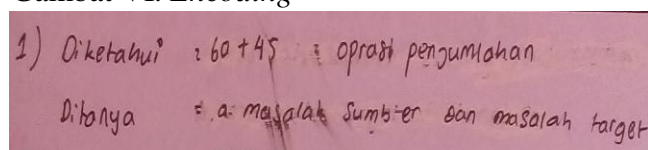 Gambar VI. Encoding
1) Diketahui : 60 + 45 : oprasi penjumlahan
Ditanya = a. masalah sumber dan masalah target